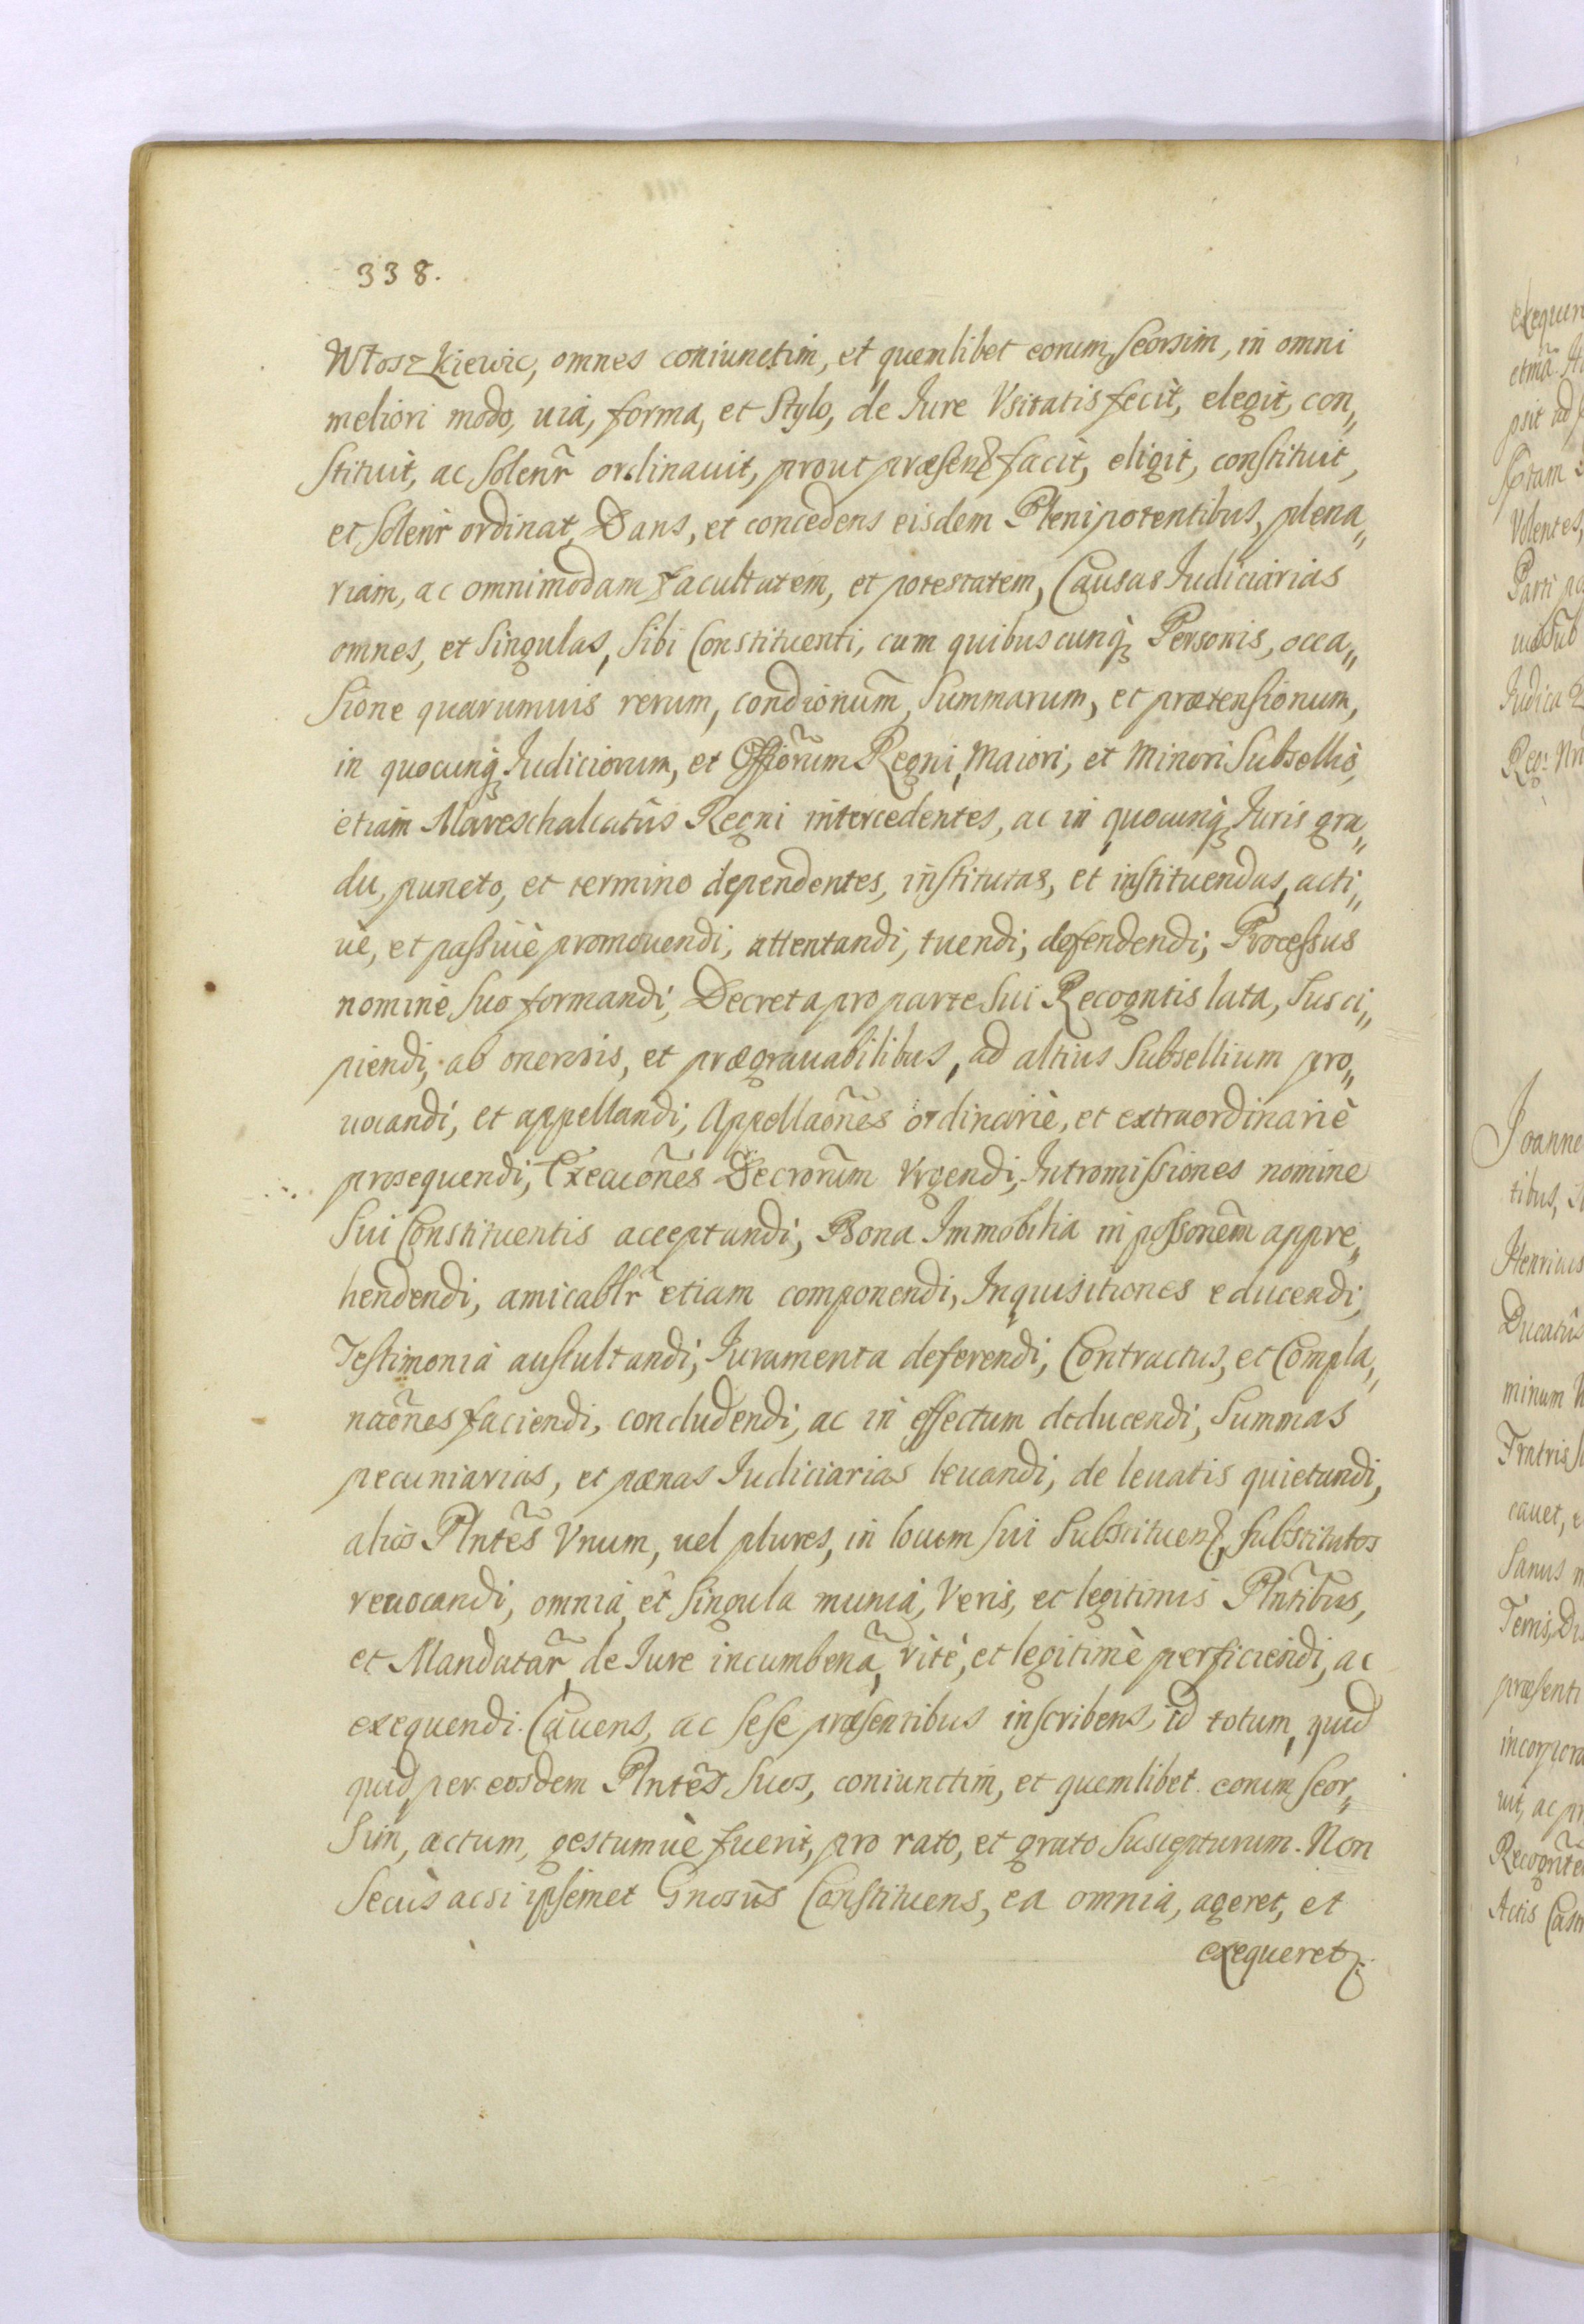 338.
Włoszkiewic, omnes coniunctim, et quemlibet eorum seorsim, in omni
meliori modo, uia, forma, et Stylo, de Iure Vsitatis fecit, elegit, con„
stituit, ac Solenr̃ ordinauit, prout præsenꝫ facit, eligit, constituit,
et Solenr̃ ordinat, Dans, et concedens eisdem Plenipotentibus, plena„
riam, ac omnimodam facultatem, et potestatem, Causas Iudiciarias
omnes, et Singulas, Sibi Constituenti, cum quibuscunqꝫ Personis, occa„
sione quarumuis rerum, condionum̃, Summarum, et prætensionum,
in quocunqꝫ Iudiciorum, et Offiorum̃ Regni, Maiori, et Minori Subsellio,
etiam Mareschalcatûs Regni intercedentes, ac in quocunqꝫ Iuris gra„
du, puncto, et termino dependentes, institutas, et instituendas, acti„
uè, et passiuè promouendi, attentandi, tuendi, defendendi; Processus
nominè Suo formandi, Decreta pro parte Sui Recogntis lata, Susci„
piendi, ab onerosis, et prægrauabilibus, ad altius Subsellium pro„
uocandi, et appellandi, Appellaões ordinariè, et extraordinariè
prosequendi, Execuões Decrorum̃ Vrgendi, Intromissiones nomine
Sui Constituentis acceptandi, Bona Immobilia in possonem̃ appre„
hendendi, amicablr̃ etiam componendi, Inquisitiones educendi,
Testimonia auscultandi, Iuramenta deferendi, Contractus, et Compla„
naões faciendi, concludendi, ac in effectum deducendi, Summas
pecuniarias, et pœnas Iudiciarias leuandi, de leuatis quietandi,
alios Plntes̃ Vnum, uel plures, in locum sui Substituenꝫ, Substitutos
reuocandi, omnia et Singula munia, Veris, et legitimis Plntibus̃,
et Mandatar̃, de Iure incumbena͂, ritè, et legitimè perficiendi, ac
exequendi. Cauens, ac sese præsentibus inscribens, id totum, quid
quid per eosdem Plntes̃ Suos, coniunctim, et quemlibet eorum seor„
sim, actum, gestumuè fuerit, pro rato, et grato Suscepturum. Non
Secùs acsi ipsemet Gnosus̃ Constituens, ea omnia, ageret, et
exequeretꝫ.